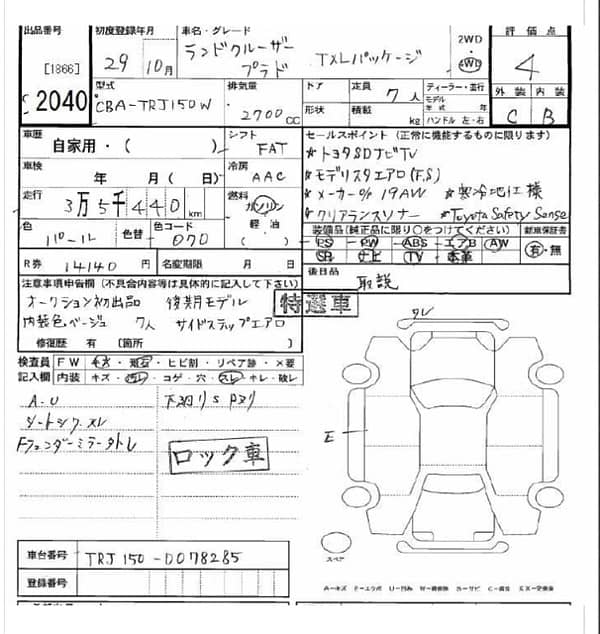 出品番号 初度登録年月 車名・グレード 2WD 評価点
[1866] 29年10月 ランドクルーザープラド TXLパッケージ 4WD 4
2040 型式 排気量 ドア 定員 7人 ディーラー・並行 外装 内装
CBA-TRJ150W 2700CC 形状 積載 kg モデル 年式 年 ハンドル 左・右 C B
車歴 自家用・( ) シフト FAT セールスポイント(正常に機能するものに限ります)
★トヨタSDナビTV
車検 年 月(日) 冷房 AAC ★モデリスタエアロ(F,S)
走行 3万5千440km 燃料 ガソリン 軽油 ( ) ★メーカーo/p 19AW ★寒冷地仕様
★クリアランスソナー ★Toyota Safety Sense
色 パール 色替 色コード 070 装備品(純正品に限り○をつけてください) 新車保証書
PS PW ABS エアB AW 有・無
SR ナビ TV 本革
R券 14140円 名変期限 月 日 後日品 取説
注意事項申告欄(不具合内容等は具体的に記入して下さい) 特選車
オークション初出品 後期モデル
内装色ベージュ 7人 サイドステップエアロ
修復歴 有(箇所 )
検査員記入欄 FW キズ・飛石・ヒビ割・リペア跡・×要
内装 キズ・汚レ・コゲ・穴・スレ・キレ・破レ
A-U 下廻りS
シートシワ・スレ
Fフェンダーミラー
ロック車
E
スペア
車台番号 TRJ150-0078285
登録番号
A-キズ